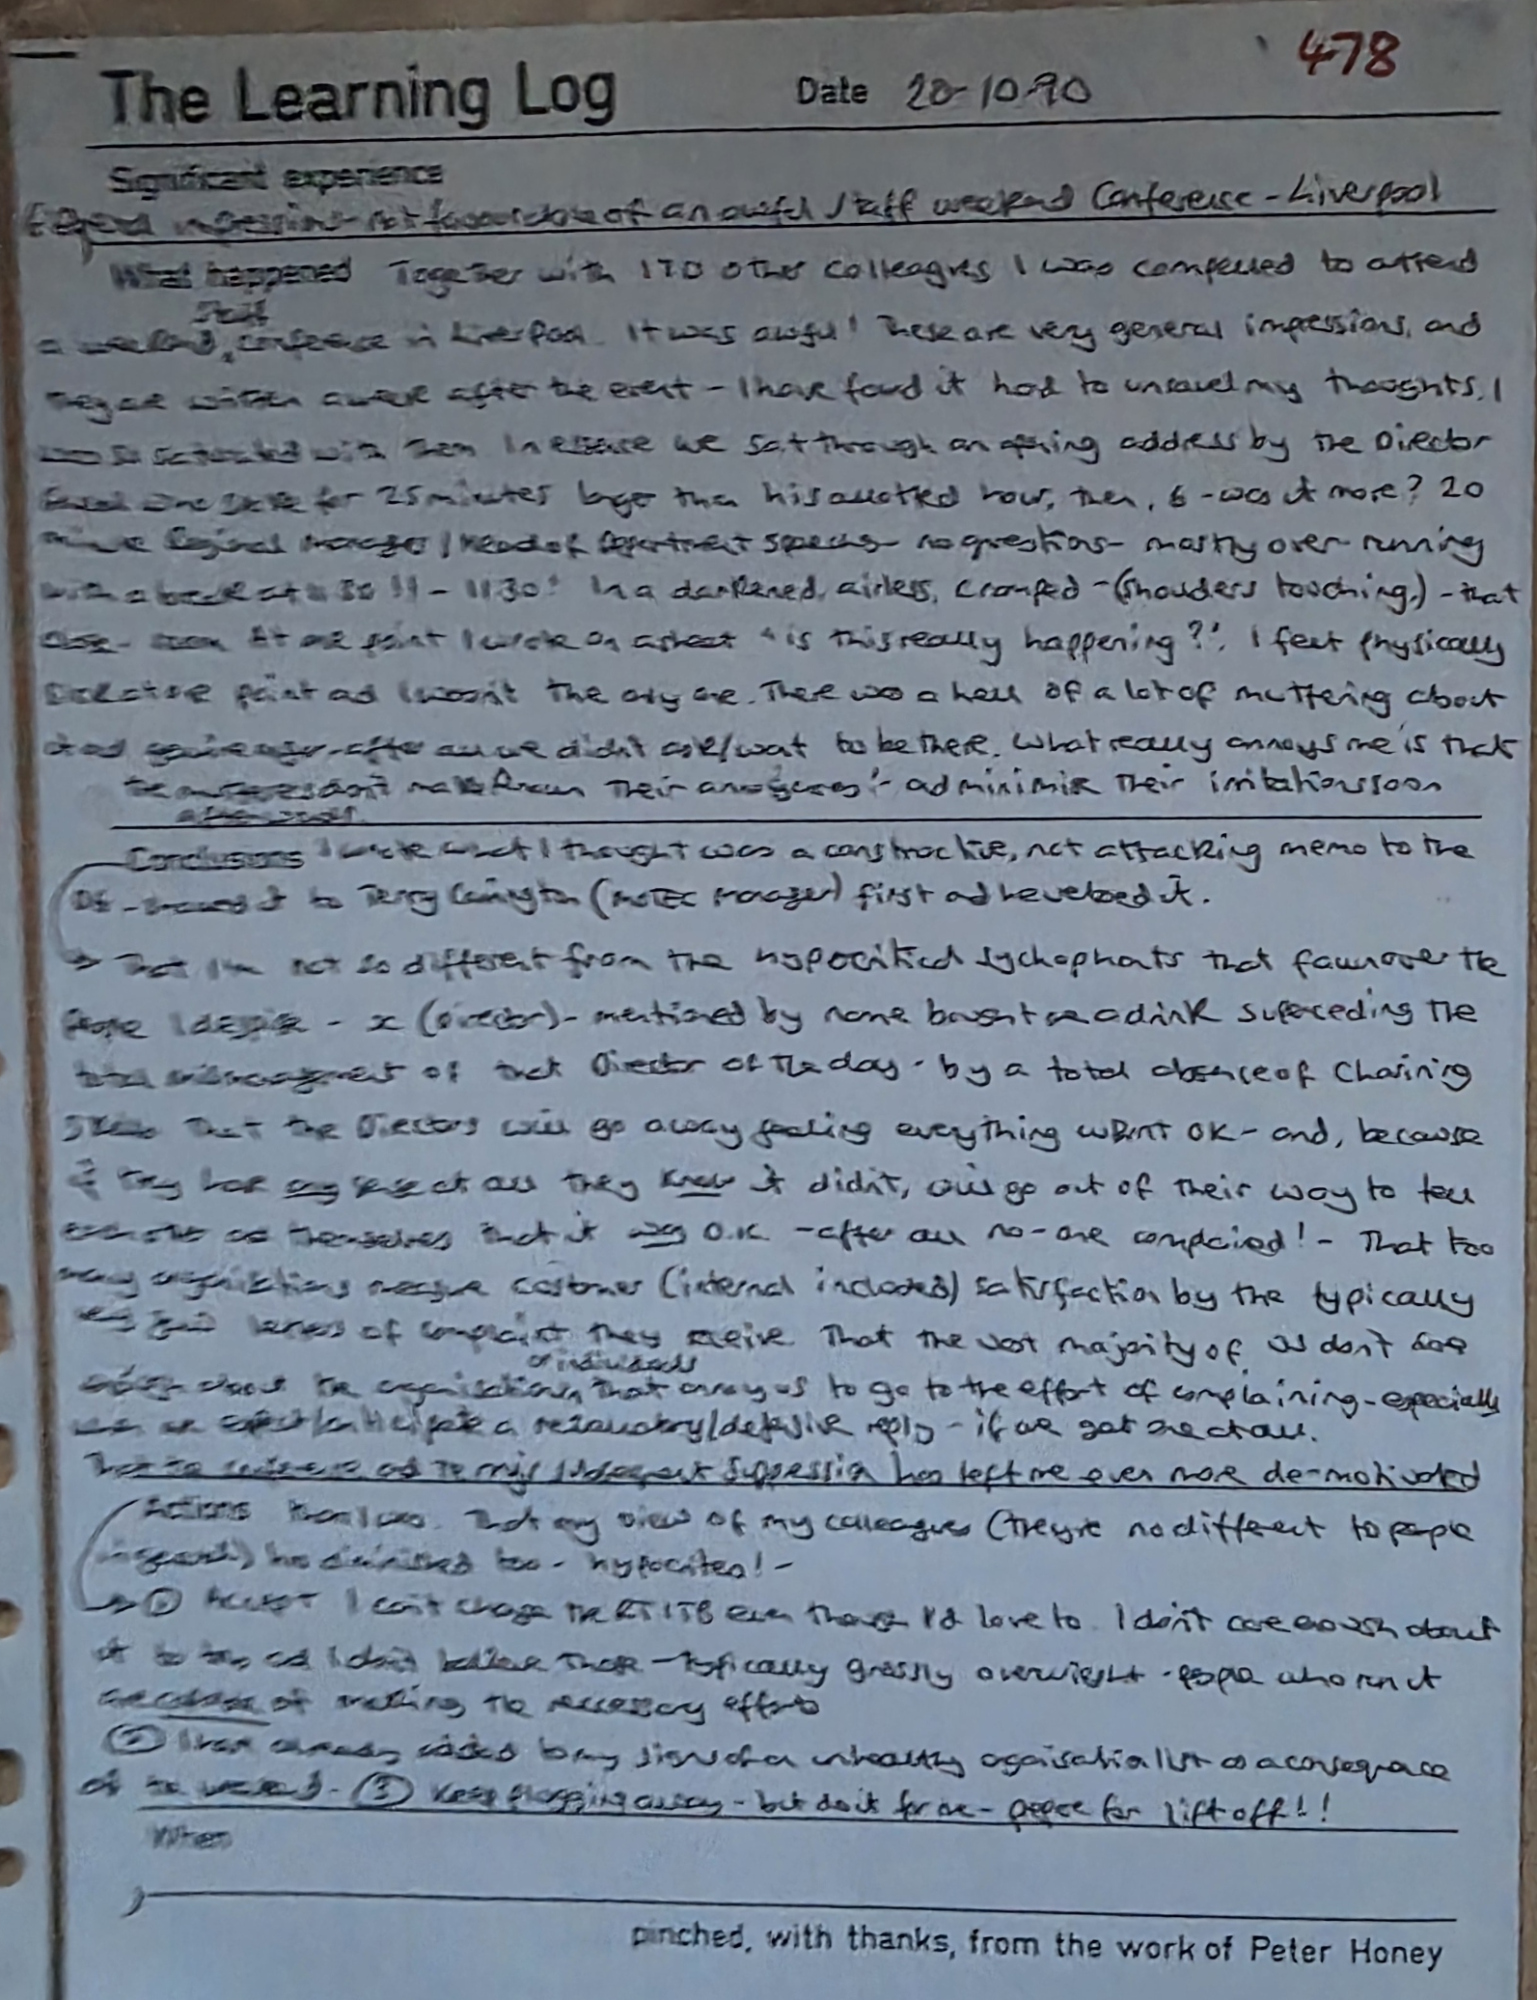 478
The Learning Log Date 20-10-90
Significant experience
impressions not favourable of an awful staff weekend Conference - Liverpool
What happened Together with 170 other colleagues I was compelled to attend
Staff
a weekend conference in Liverpool. It was awful! These are very general impressions, and
they are written a week after the event - I have found it hard to unravel my thoughts, I
was so saturated with them In essence we sat through an opening address by the Director
for 25 minutes longer than his allotted hour, then, 6 - was it more? 20
minute Regional Manager / Head of Department speeches - no questions - mostly over running
with a break at 11 - 1130! In a darkened, airless, cramped - (shoulders touching,) - that
close - room At one point I wrote on a sheet "is this really happening?". I felt physically
sick at one point and I wasn't the only one. There was a hell of a lot of muttering about
it and after all we didn't ask/want to be there. What really annoys me is that
the mutterers don't make known their annoyances! - and minimise their irritations soon
afterwards
Conclusions I wrote what I thought was a constructive, not attacking memo to the
showed it to Terry (MOTEC Manager) first and he vetoed it.
→ That I'm not so different from the hypocritical sychophants that fawn over the
people I despise - x (Director) - mentioned by name bought me a drink superceding the
total mismanagement of that Director of the day - by a total absence of Chairing
Skills That the Directors will go away feeling everything went OK - and, because
if they had any sense at all they knew it didn't, will go out of their way to tell
and themselves that it was O.K. - after all no-one complained! - That too
many organisations measure customer (internal included) satisfaction by the typically
levels of complaint they receive. That the vast majority of us don't care
or individuals
enough about the organisations that annoy us to go to the effort of complaining - especially
when we expect/anticipate a reactionary/defensive reply - if we get one at all.
That the and Terry's subsequent suppression has left me even more de-motivated
Actions than I was. That my view of my colleagues (they're no different to people
in general) has diminished too - hypocrites! -
→ ① Accept I can't change the RTITB even though I'd love to. I don't care enough about
it to try and I don't believe those - typically grossly overweight - people who run it
are capable of making the necessary efforts
② I have already added to my signs of an unhealthy organisation list as a consequence
of the weekend. ③ Keep plugging away - but do it for me - prepare for lift off!!
When
pinched, with thanks, from the work of Peter Honey